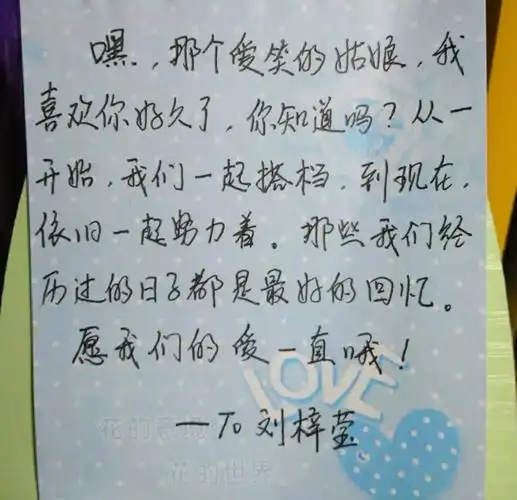 嘿，那个爱笑的姑娘，我
喜欢你好久了，你知道吗？从一
开始，我们一起搭档，到现在，
依旧一起努力着。那些我们经
历过的日子都是最好的回忆。
愿我们的爱一直哦！
LOVE
—To 刘梓莹
花的
花的世界